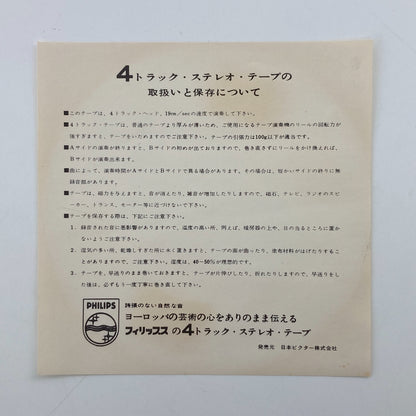 4トラック・ステレオ・テープの
取扱いと保存について
■このテープは、4トラック・ヘッド、19cm/secの速度で演奏して下さい。
■4トラック・テープは、普通のテープより厚みが薄いため、ご使用になるテープ演奏機のリールの回転力が
強すぎますと、テープをいためますのでご注意下さい。テープの引張力は100g以下が適当です。
■Aサイドの演奏が終りますと、Bサイドの始めが出ておりますので、巻き直さずにリールをかけ換えれば、
Bサイドが演奏出来ます。
■曲によって、演奏時間がAサイドとBサイドで異る場合があります。その場合は、短かいサイドの終りに無
録音部があります。
■テープは、磁力を与えますと、音が消えたり、雑音が増加したりしますので、磁石、テレビ、ラジオのスピ
ーカー、トランス、モーター等に近づけないで下さい。
■テープを保存する際は、下記にご注意下さい。
1．録音された音に悪影響がありますので、温度の高い所、例えば、暖房器の上や、日の当るところに置か
ないようご注意下さい。
2．湿気の多い所、乾燥しすぎた所に永く置きますと、テープの面が曲ったり、塗布材料がはげたりするこ
とがありますので、ご注意下さい。湿度は、40～50％が理想的です。
3．テープを、早送りのまま巻いておきますと、テープが片伸びしたり、折れたりしますので、早送りをし
た後は、必ずもう一度丁寧に巻き直して下さい。
PHILIPS
誇張のない自然な音
ヨーロッパの芸術の心をありのまま伝える
フィリップスの4トラック・ステレオ・テープ
発売元 日本ビクター株式会社